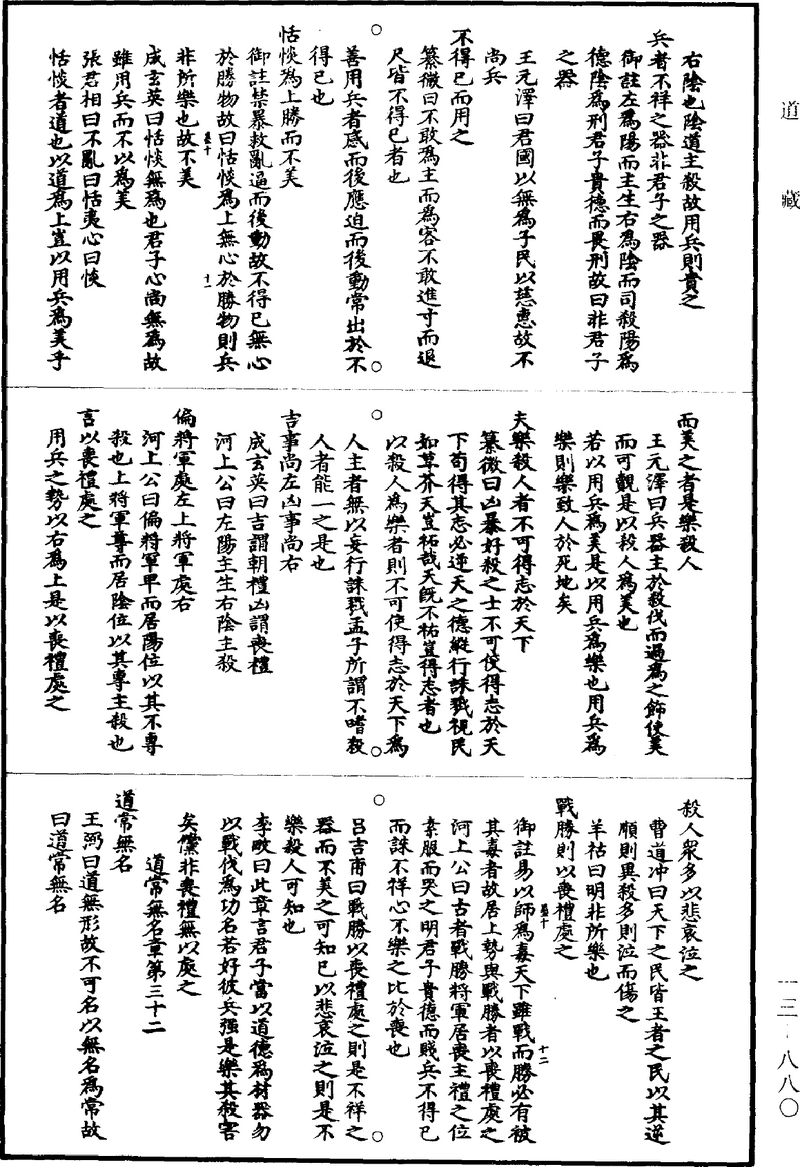 道藏
一三-八八〇
右陰也陰道主殺故用兵則貴之
兵者不祥之器非君子之器
御註左為陽而主生右為陰而司殺陽為
德陰為刑君子貴德而畏刑故曰非君子
之器
王元澤曰君國以無為子民以慈惠故不
尚兵
不得已而用之
纂微曰不敢為主而為客不敢進寸而退
尺皆不得已者也
善用兵者感而後應迫而後動常出於不
得已也
恬惔為上勝而不美
御註禁暴救亂逼而後動故不得已無心
於勝物故曰恬惔為上無心於勝物則兵
墨十
十一
非所樂也故不美
成玄英曰恬惔無為也君子心尚無為故
雖用兵而不以為美
張君相曰不亂曰恬夷心曰惔
恬惔者道也以道為上豈以用兵為美乎
而美之者是樂殺人
王元澤曰兵器主於殺伐而過為之飾使美
而可觀是以殺人為美也
若以用兵為美是以用兵為樂也用兵為
樂則樂致人於死地矣
夫樂殺人者不可得志於天下
纂微曰凶暴好殺之士不可使得志於天
下苟得其志必逆天之德縱行誅戮視民
如草芥天豈祐哉天既不祐豈得志者也
以殺人為樂者則不可使得志於天下為
人主者無以妄行誅戮孟子所謂不嗜殺
人者能一之是也
吉事尚左凶事尚右
成玄英曰吉謂朝禮凶謂喪禮
河上公曰左陽主生右陰主殺
偏將軍處左上將軍處右
河上公曰偏將軍卑而居陽位以其不專
殺也上將軍尊而居陰位以其專主殺也
言以喪禮處之
用兵之勢以右為上是以喪禮處之
殺人眾多以悲哀泣之
曹道沖曰天下之民皆王者之民以其逆
順則異殺多則泣而傷之
羊祜曰明非所樂也
戰勝則以喪禮處之
墨十
十二
御註易以師為毒天下雖戰而勝必有被
其毒者故居上勢與戰勝者以喪禮處之
河上公曰古者戰勝將軍居喪主禮之位
素服而哭之明君子貴德而賤兵不得已
而誅不祥心不樂之比於喪也
呂吉甫曰戰勝以喪禮處之則是不祥之
器而不美之可知已以悲哀泣之則是不
樂殺人可知也
李畋曰此章言君子當以道德為材器勿
以戰伐為功名若好彼兵強是樂其殺害
矣儻非喪禮無以處之
道常無名章第三十二
道常無名
王弼曰道無形故不可名以無名為常故
曰道常無名